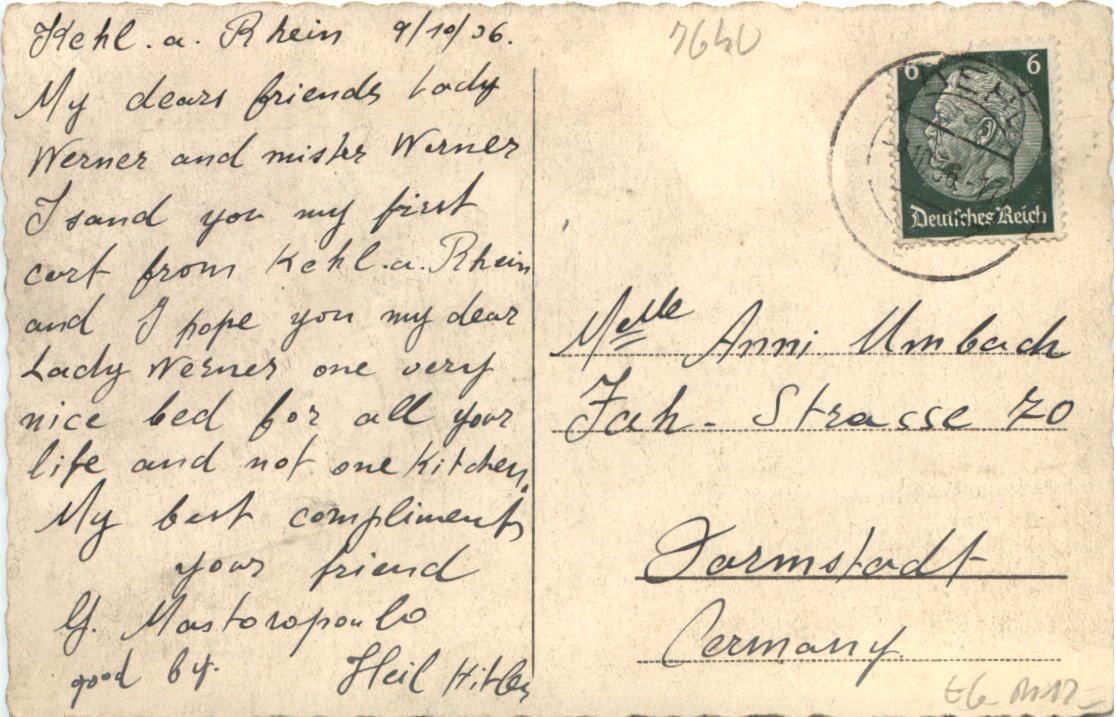 Kehl. a. Rhein 9/10/36.
My dears friends Lady
Werner and mister Werner
I sand you my first
cart from Kehl. a. Rhein
and I pope you my dear
Lady Werner one very
nice bed for all your
life and not one Kitchen.
My best compliments
your friend
G. Mastoropoulo
good by. Heil Hitler
7640
6 6
Deutsches Reich
Melle Anni Umbach
Jah-Strasse 70
Darmstadt
Germany.